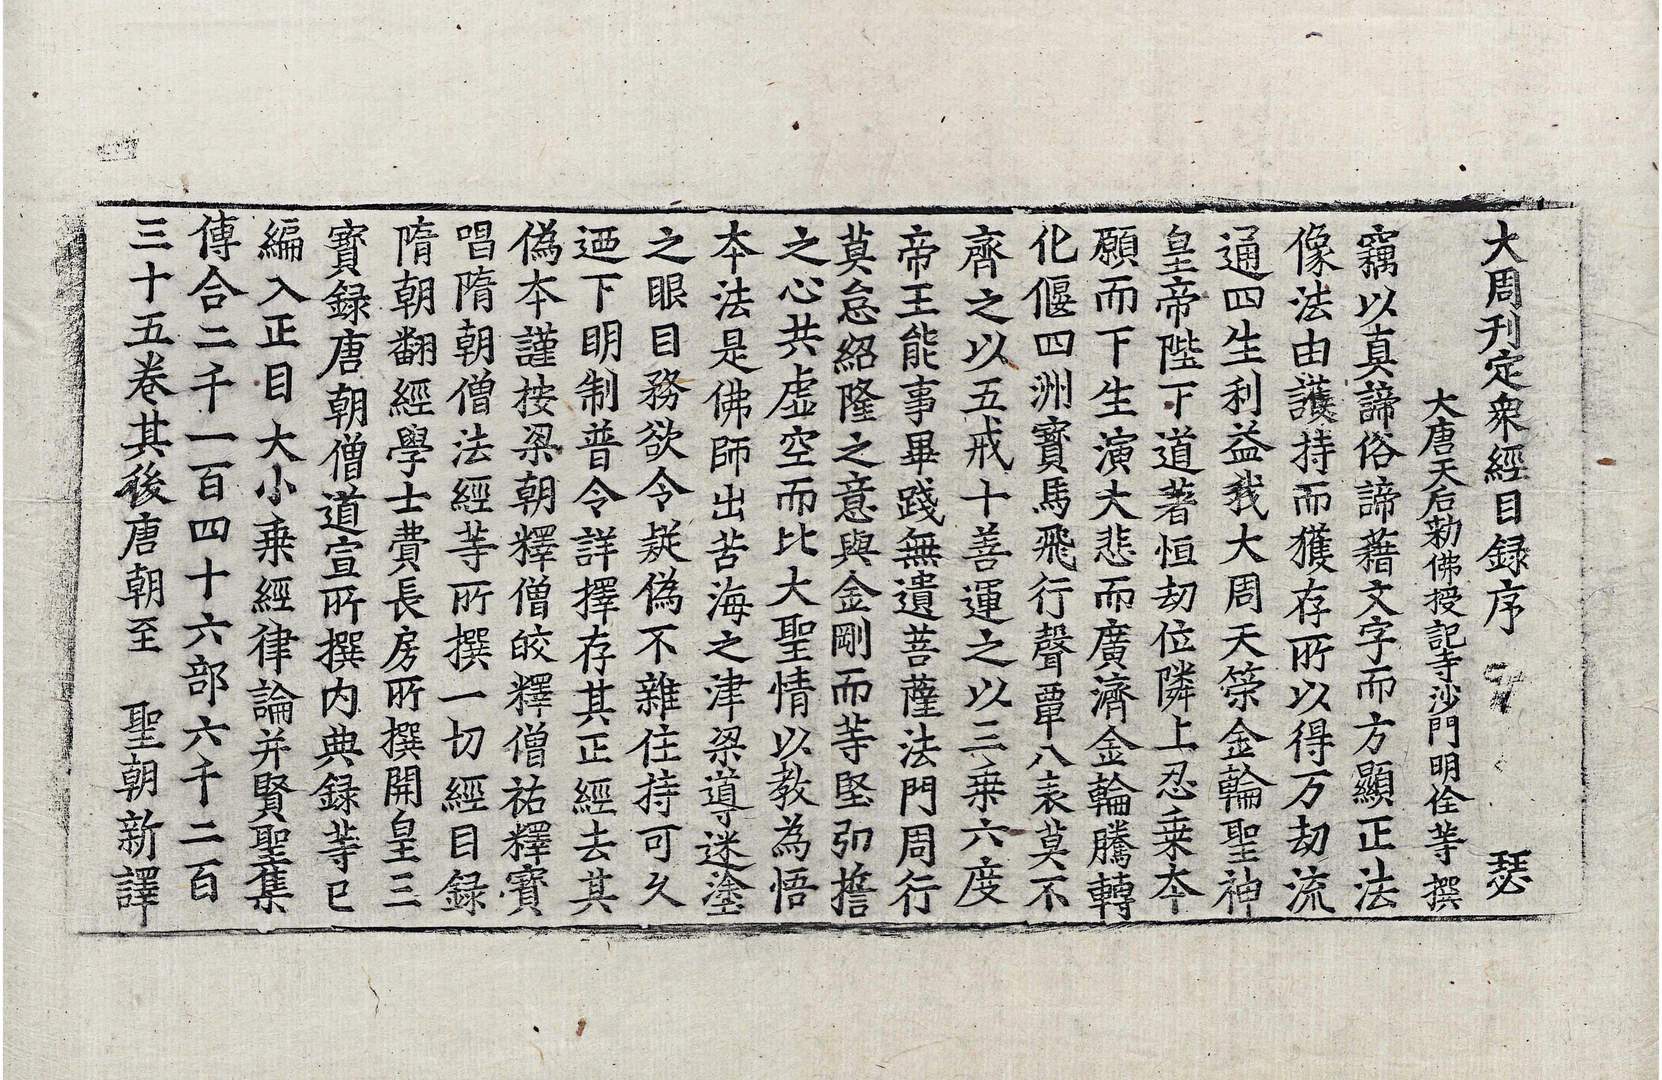 大周刊定衆經目録序 瑟
大唐天后勅佛授記寺沙門明佺等撰
竊以真諦俗諦藉文字而方顯正法
像法由護持而獲存所以得万劫流
通四生利益我大周天䇿金輪聖神
皇帝陛下道著恒劫位隣上忍乗本
願而下生演大悲而廣濟金輪騰轉
化偃四洲寳馬飛行聲覃八表莫不
齊之以五戒十善運之以三乗六度
帝王能事畢踐無遺菩薩法門周行
莫怠紹隆之意與金剛而等堅弘擔
之心共虚空而比大聖情以教為悟
本法是佛師出苦海之津梁導迷塗
之眼目務欲令疑偽不雜住持可久
迺下明制普令詳擇存其正經去其
偽本謹按梁朝釋僧皎釋僧祐釋寳
唱隋朝僧法經等所撰一切經目録
隋朝翻經學士費長房所撰開皇三
寳録唐朝僧道宣所撰内典録等已
編入正目大小乗經律論并賢聖集
傳合二千一百四十六部六千二百
三十五卷其後唐朝至 聖朝新譯